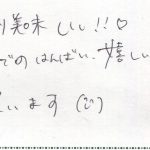 美味しい!!♡
でのはんばい、嬉しい
います(¨)